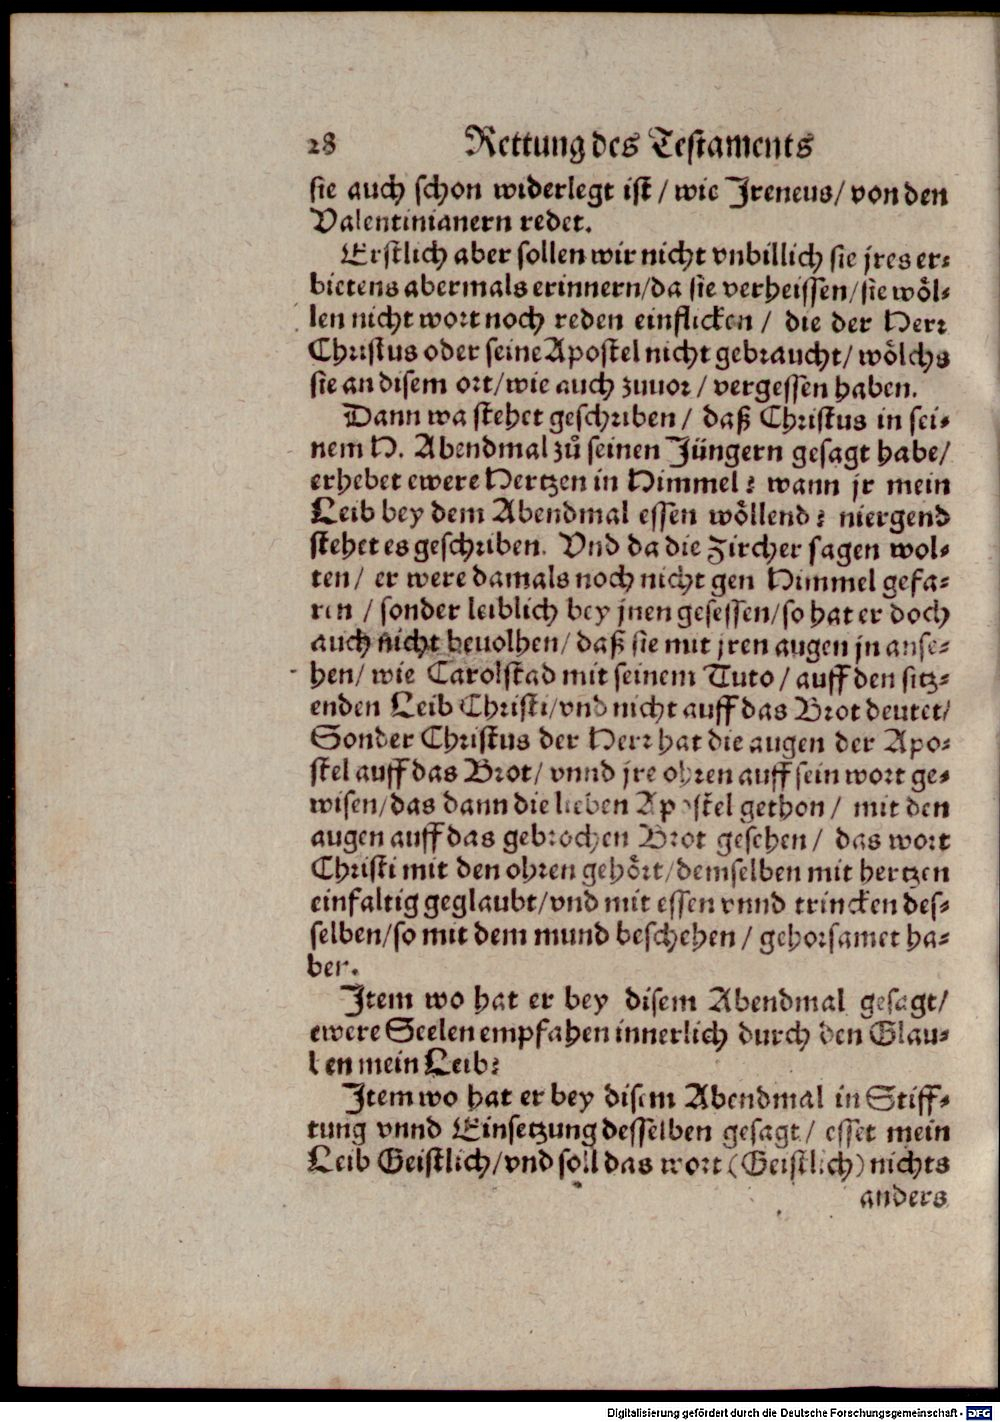 28 Rettung des Testaments
sie auch schon widerlegt ist / wie Jreneus / von den
Valentinianern redet.
Erstlich aber sollen wir nicht vnbillich sie jres er⸗
bietens abermals erinnern / da sie verheissen / sie wöl⸗
len nicht wort noch reden einflicken / die der Herr
Christus oder seine Apostel nicht gebraucht / wölchs
sie an disem ort / wie auch zuuor / vergessen haben.
Dann wa stehet geschriben / daß Christus in sei⸗
nem H. Abendmal zů seinen Jüngern gesagt habe /
erhebet ewere Hertzen in Himmel? wann jr mein
Leib bey dem Abendmal essen wöllend? niergend
stehet es geschriben. Vnd da die Zircher sagen wol⸗
ten / er were damals noch nicht gen Himmel gefa⸗
ren / sonder leiblich bey jnen gesessen / so hat er doch
auch nicht beuolhen / daß sie mit jren augen jn anse⸗
hen / wie Carolstad mit seinem Tuto / auff den sitz⸗
enden Leib Christi / vnd nicht auff das Brot deutet /
Sonder Christus der Herr hat die augen der Apo⸗
stel auff das Brot / vnnd jre ohren auff sein wort ge⸗
wisen / das dann die lieben Apostel gethon / mit den
augen auff das gebrochen Brot gesehen / das wort
Christi mit den ohren gehört / demselben mit hertzen
einfaltig geglaubt / vnd mit essen vnnd trincken des⸗
selben / so mit dem mund beschehen / gehorsamet ha⸗
ben.
Jtem wo hat er bey disem Abendmal gesagt /
ewere Seelen empfahen innerlich durch den Glau⸗
ben mein Leib?
Jtem wo hat er bey disem Abendmal in Stiff⸗
tung vnnd Einsetzung desselben gesagt / esset mein
Leib Geistlich / vnd soll das wort (Geistlich) nichts
anders
Digitalisierung gefördert durch die Deutsche Forschungsgemeinschaft - DFG